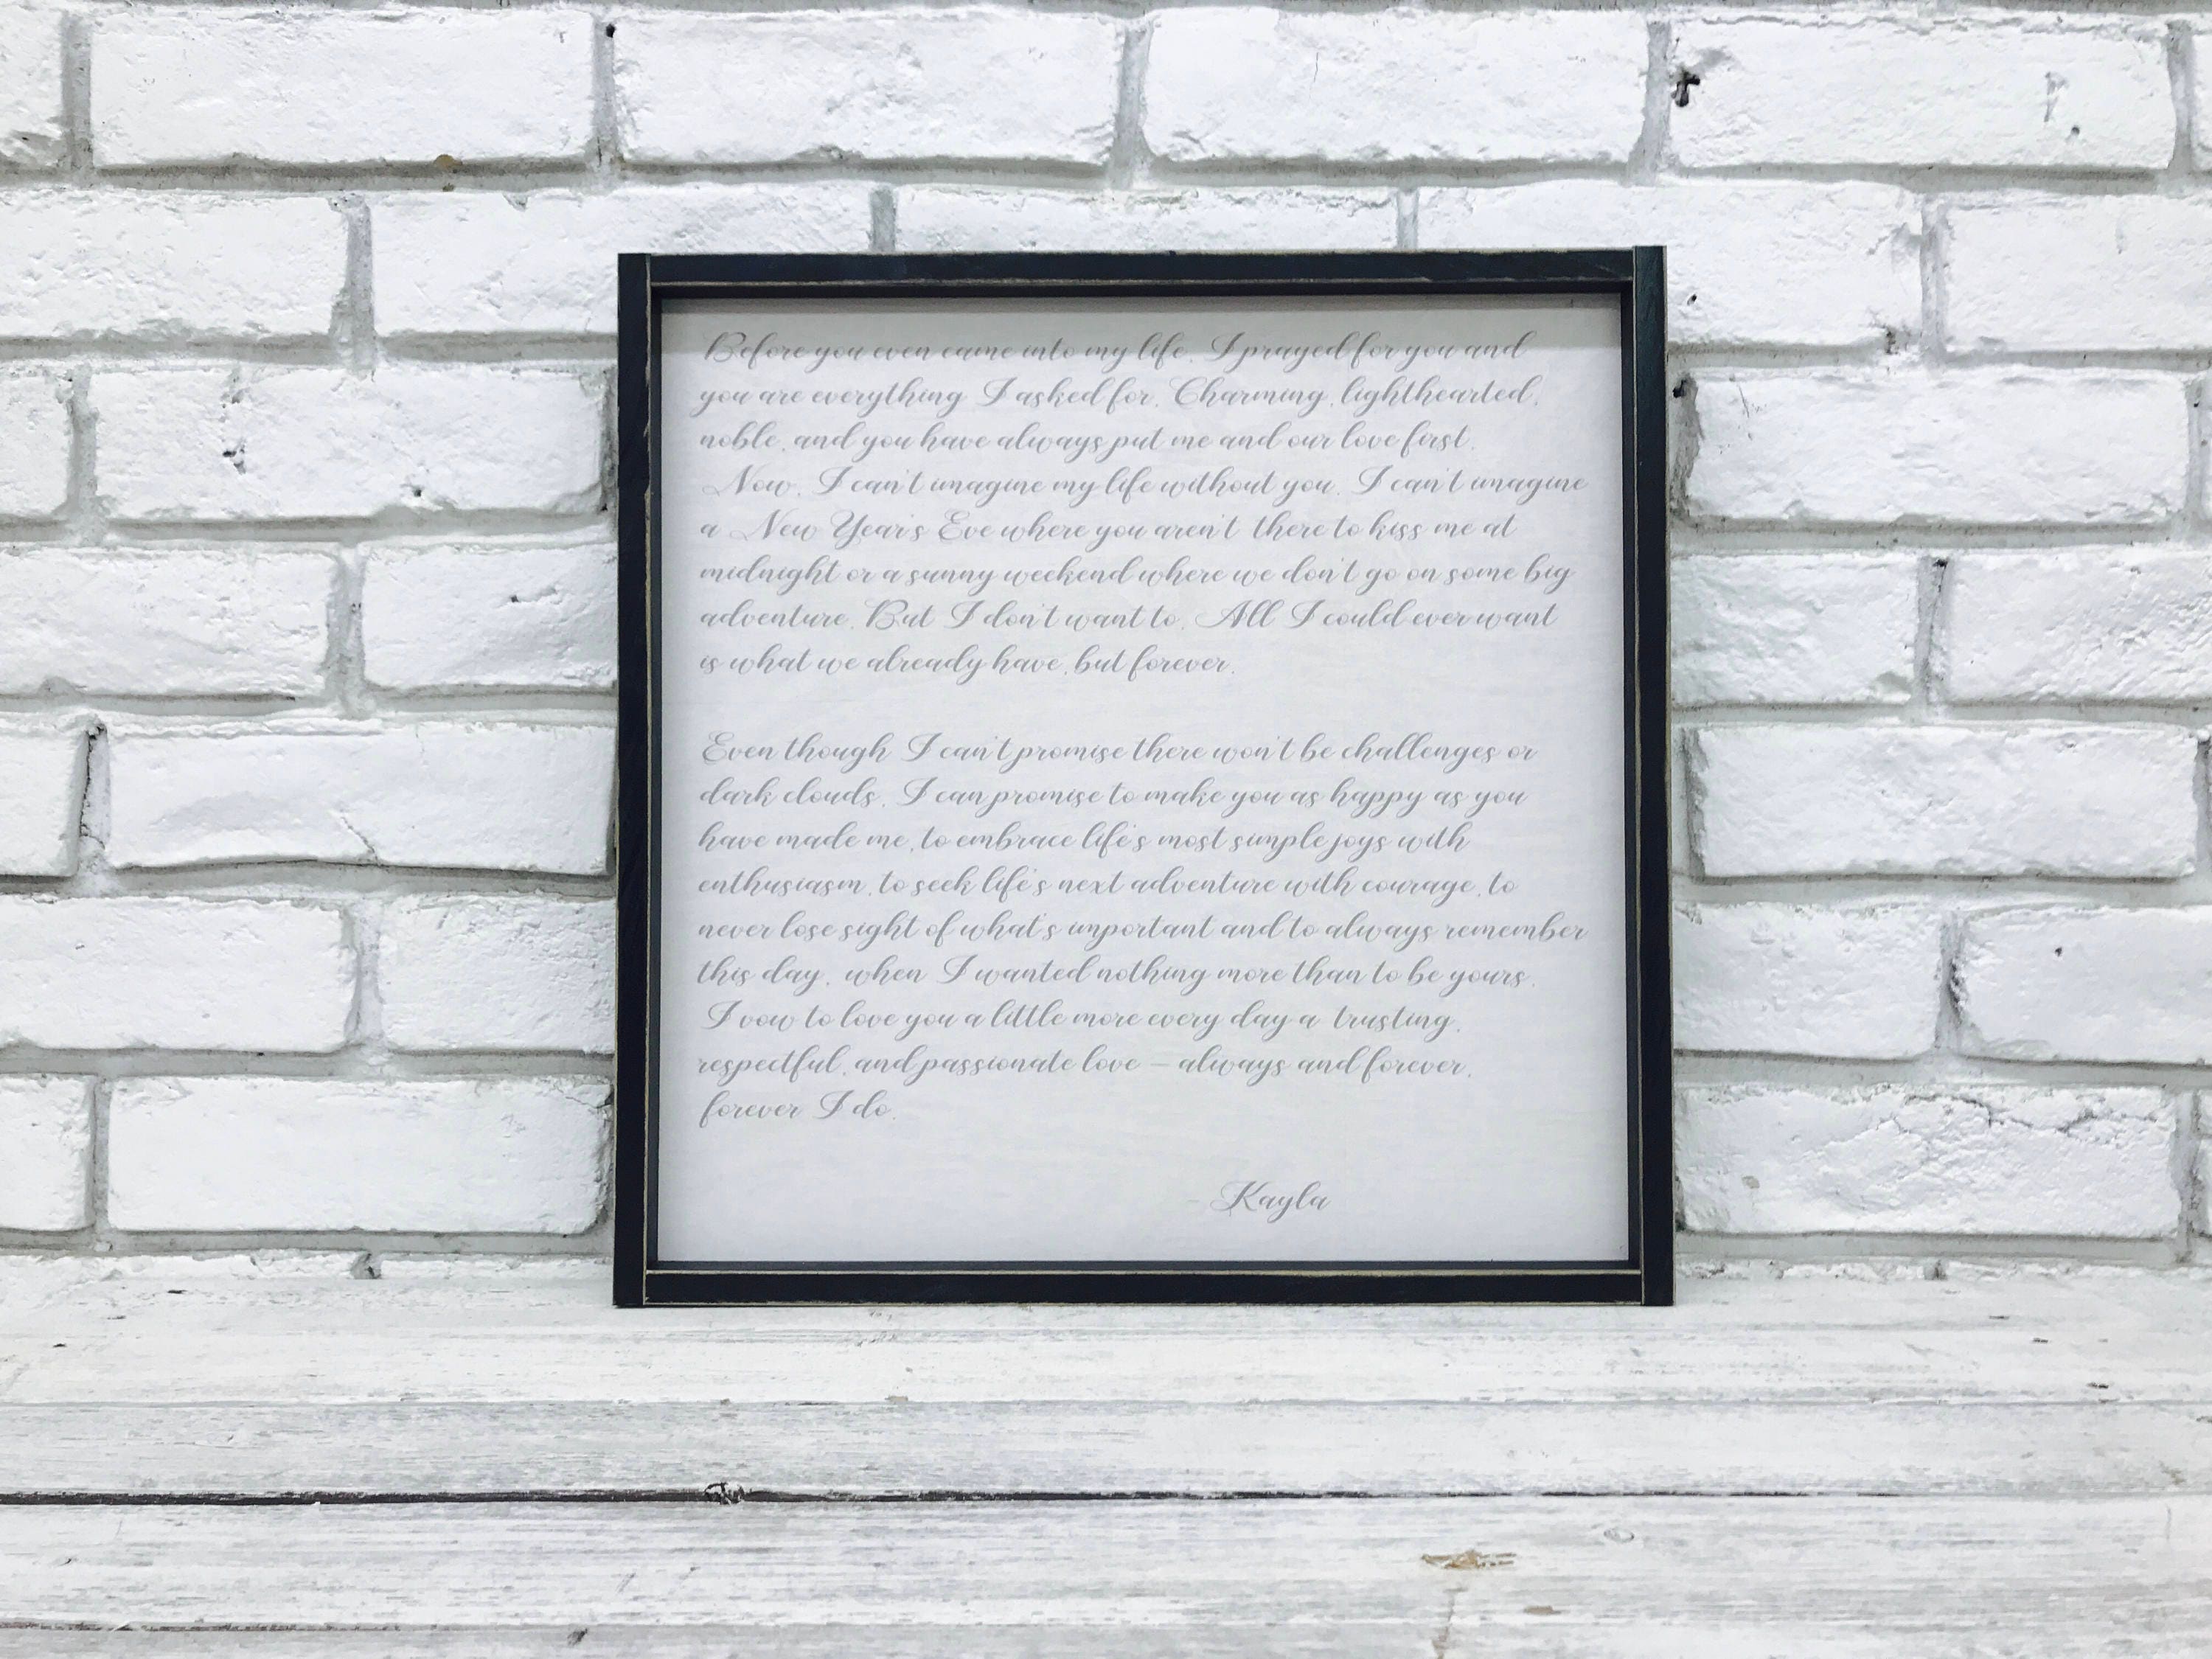 Before you even came into my life, I prayed for you and
you are everything I asked for. Charming, lighthearted,
noble, and you have always put me and our love first.
Now, I can't imagine my life without you. I can't imagine
a New Year's Eve where you aren't there to kiss me at
midnight or a sunny weekend where we don't go on some big
adventure. But I don't want to. All I could ever want
is what we already have, but forever.
Even though I can't promise there won't be challenges or
dark clouds, I can promise to make you as happy as you
have made me, to embrace life's most simple joys with
enthusiasm, to seek life's next adventure with courage, to
never lose sight of what's important and to always remember
this day, when I wanted nothing more than to be yours.
I vow to love you a little more every day-a trusting,
respectful, and passionate love – always and forever,
forever I do.
- Kayla